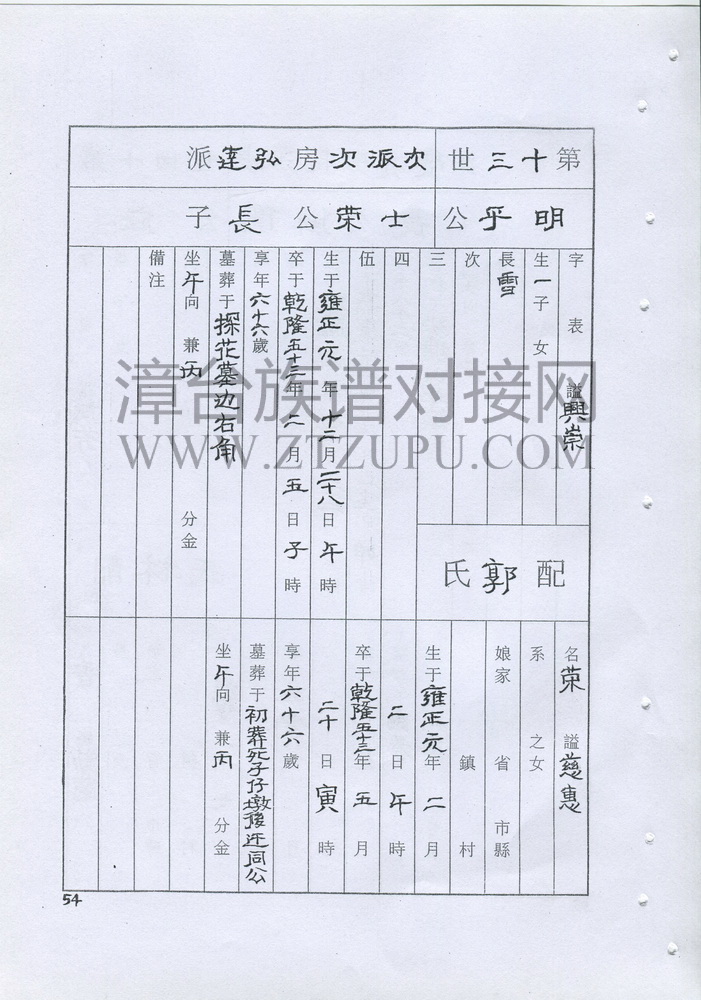 第十三世
次派次房弘達派
明平公
士荣公長子
字表 謚興崇
生一子 女
長雪
次
三
四
伍
生于雍正元年十二月二十八日午時
卒于乾隆五十三年二月五日子時
享年六十六歲
墓葬于探花墓边右角
坐午向 兼丙 分金
備注
配郭氏
名荣 謚慈惠
系 之女
娘家 省 市縣
鎮 村
生于雍正元年二月
二日午時
卒于乾隆五十三年五月
二十日寅時
享年六十六歲
墓葬于初葬死子仔墩後迁同公
坐午向 兼丙 分金
54
漳台族谱对接网
WWW.ZTZUPU.COM